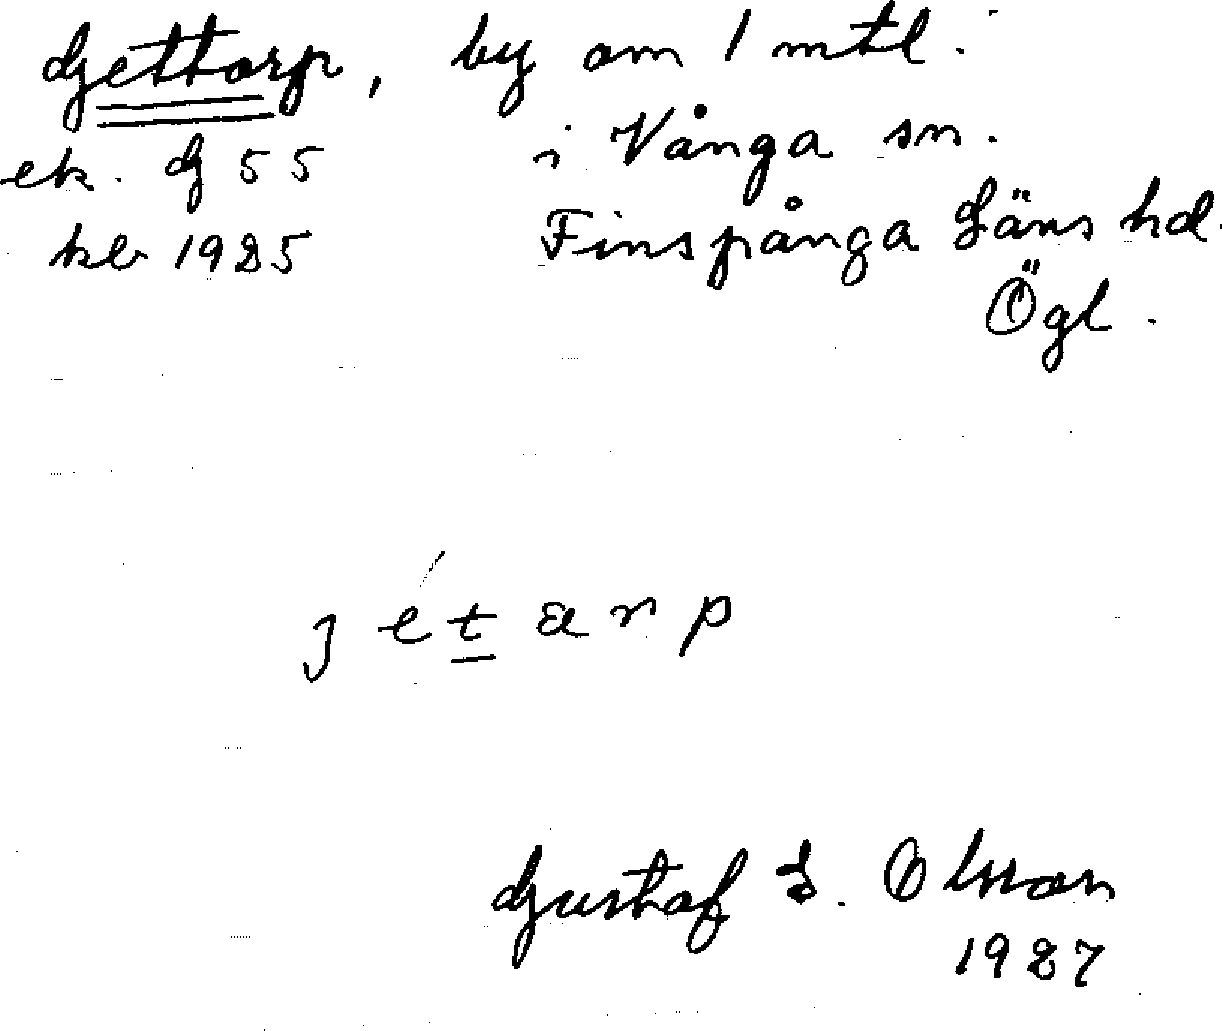 Gettorp, by om 1 mtl.
i Vånga sn.
ek. G 55
Finspånga Läns hd.
1925
Ögl.
ȷ é t̲ a r p
Gustaf Olsson
1927